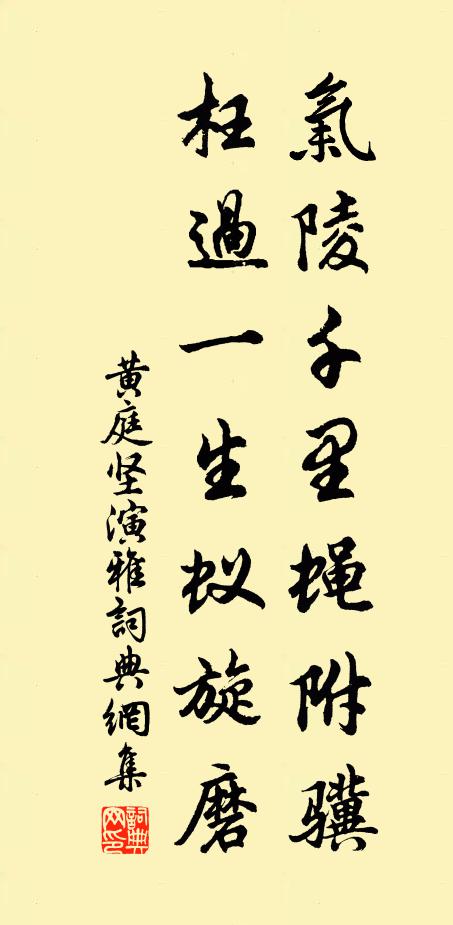 氣陵千里蝇附驥
枉過一生蚁旋磨
黄庭坚演雅詞典網集
詞典網印